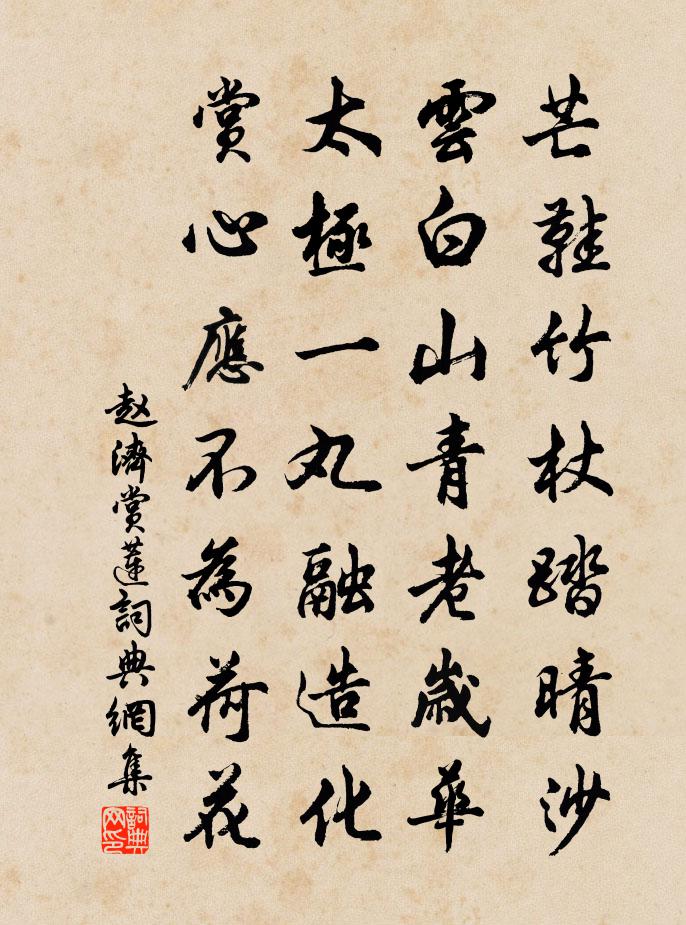 芒鞋竹杖踏晴沙
雲白山青老歲華
太極一丸融造化
賞心應不為荷花
赵濟賞蓮詞典網集
詞典网印